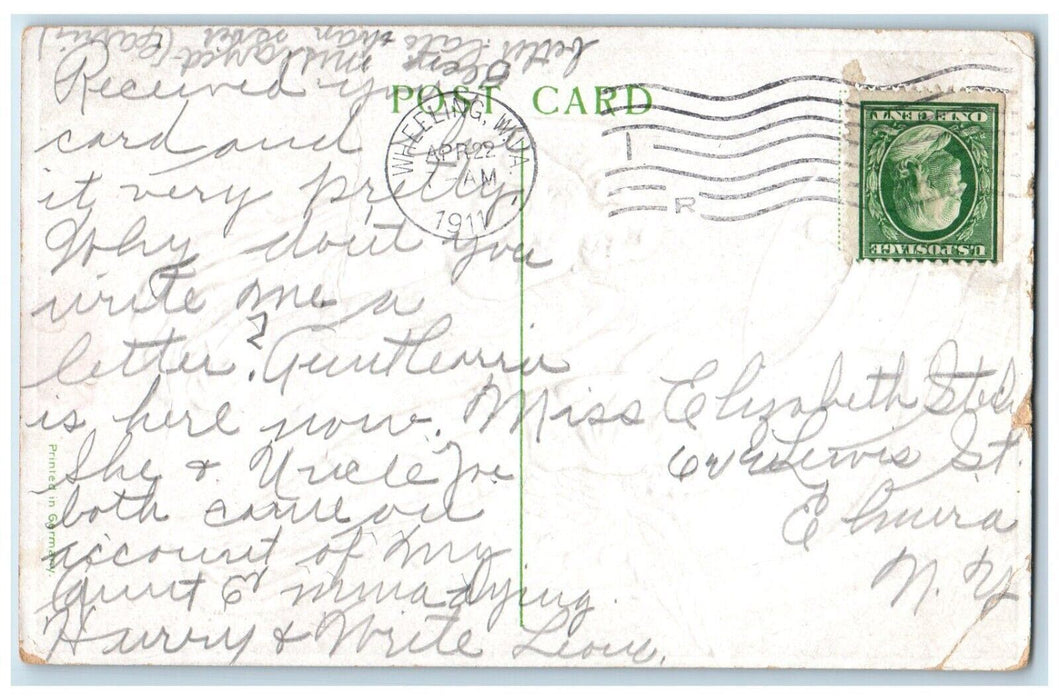 better late than never
Received your
POST CARD
card and
WHEELING, W.VA.
APR 22
7-AM
1911
R
ONE CENT
U.S. POSTAGE
it very pretty.
Why don't you
write me a
letter?
is here now.
She & Uncle Joe
both came on
account of my
Aunt dying.
Hurry & Write
Miss Elizabeth
Lewis St.
Elmira
N. Y.
Printed in Germany.